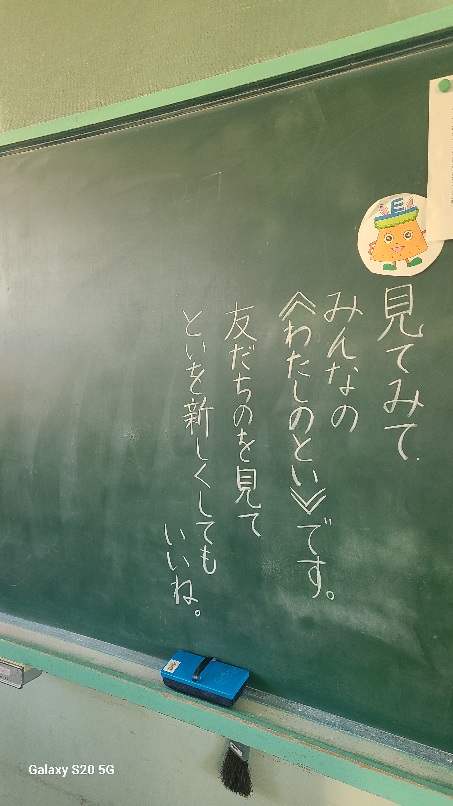 見てみて
みんなの
《わたしのとい》です。
友だちのを見て
といを新しくしても
いいね。
Galaxy S20 5G